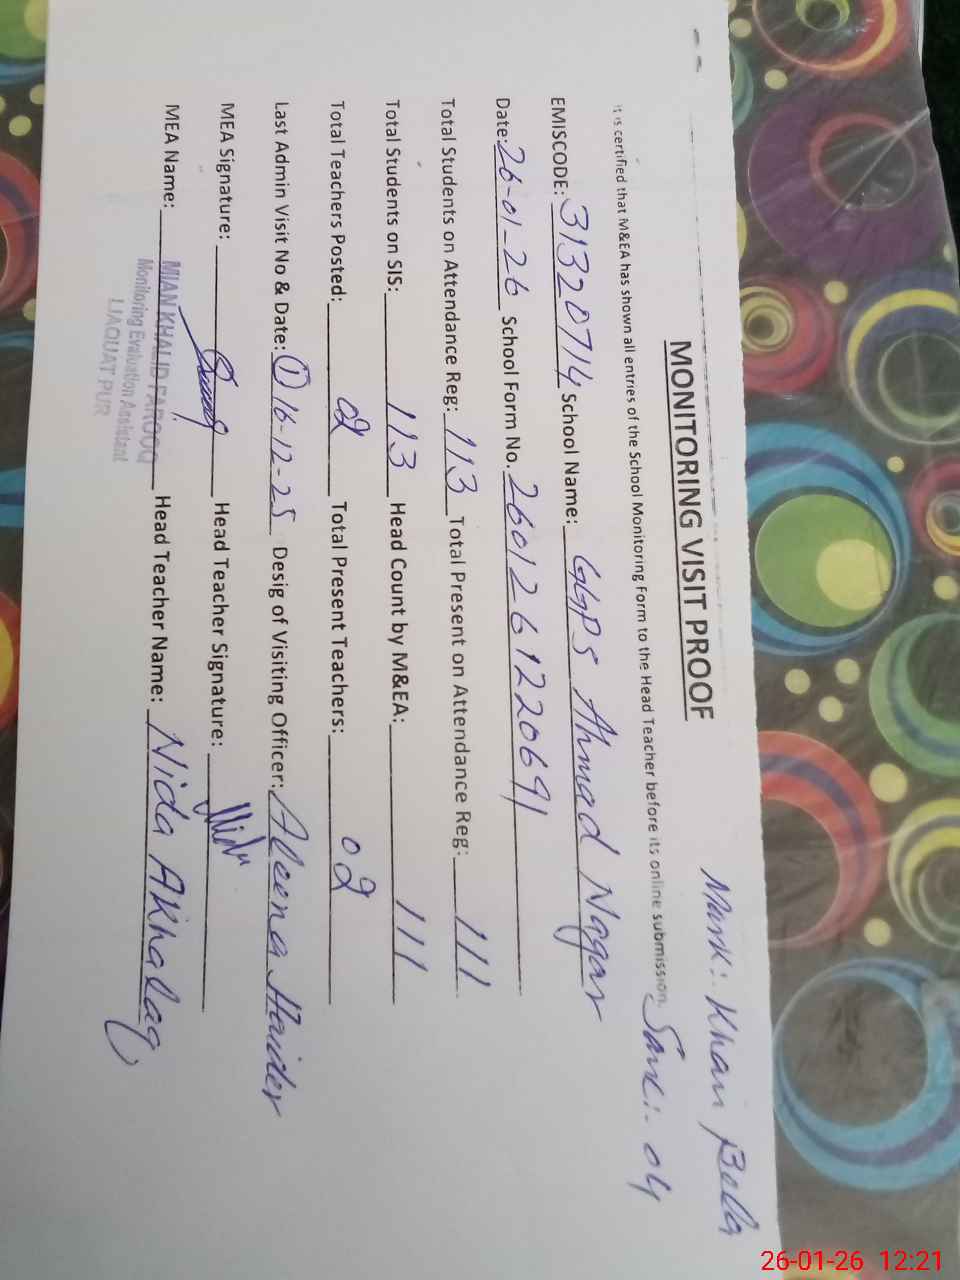 Mark:. Khan Bella
MONITORING VISIT PROOF
It is certified that M&EA has shown all entries of the School Monitoring Form to the Head Teacher before its online submission. Sanc:- 04
EMISCODE: 31320714 School Name: GGPS Ahmad Nagar
Date: 26-01-26 School Form No. 2601261220691
Total Students on Attendance Reg: 113 Total Present on Attendance Reg: 111
Total Students on SIS: 113 Head Count by M&EA: 111
Total Teachers Posted: 02 Total Present Teachers: 02
Last Admin Visit No & Date: 1 16-12-25 Desig of Visiting Officer: Aleena Haider
MEA Signature: Head Teacher Signature:
MEA Name: MIAN KHALID FAROOQ Head Teacher Name: Nida AKhalaq
Monitoring Evaluation Assistant
LIAQUAT PUR
26-01-26 12:21